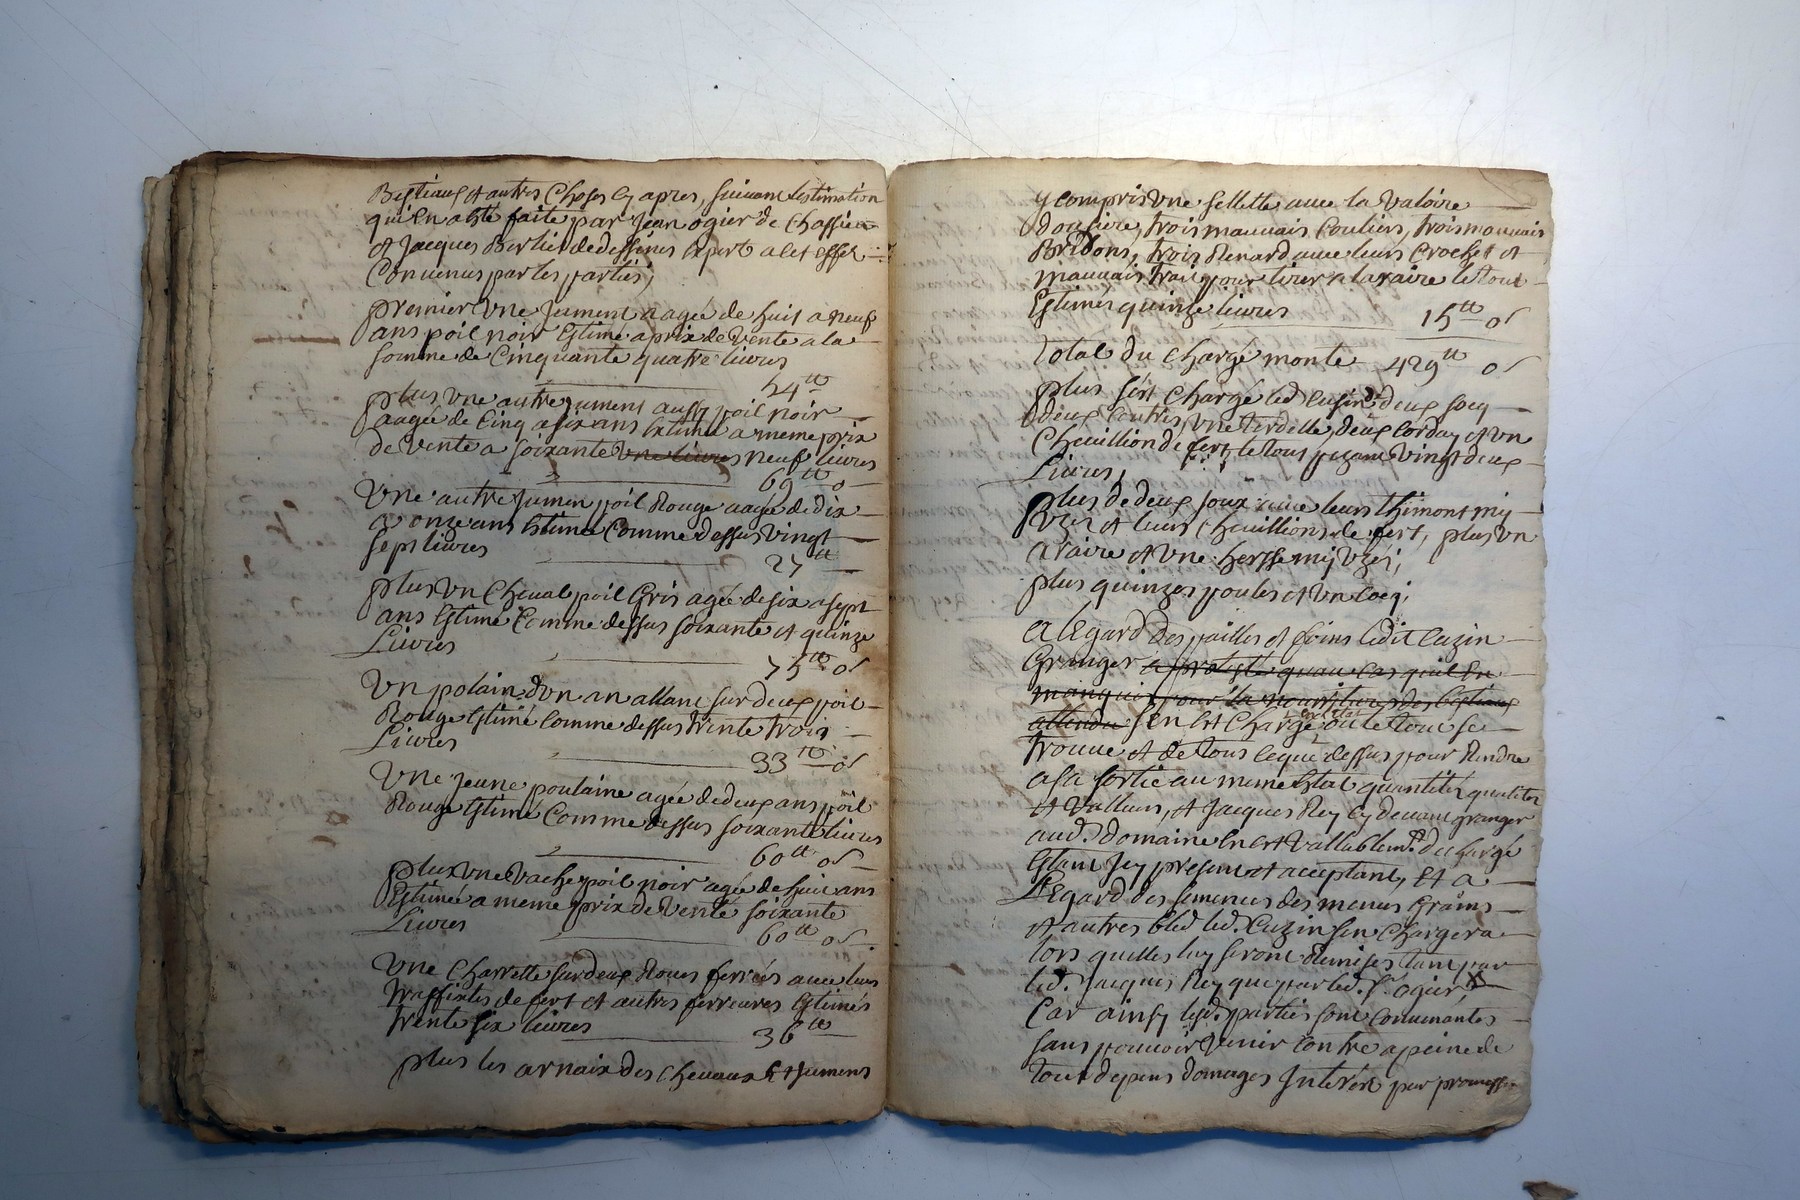 Bestiaux et autres Choses Cy apres, suivant lestimation
qui En a esté faite par Jean ogier de Chassieu
et Jacques Berlie de dessines Expert a cet effet
Convenus par les parties,
premier Une Jument aagée de huit a neuf
ans poil noir Estimé a prix de Vente a la
somme de Cinquante quatre livres
54 tt
plus, Une autre jument aussy poil noir
aagée de Cinq a six ans Estimé a meme prix
de Vente a soixante Une livres neuf livres
69 tt 0
Une autre Jument poil Rouge aagée de dix
a onze ans Estimée Comme dessus vingt
sept livres
27 tt
plus Un Cheval poil Gris agée de six a sept
ans Estimé Comme dessus soixante et quinze
Livres
75 tt 0 s
Un polain d'un an allant sur deux poil
Rouge Estimé Comme dessus trente trois
Livres
33 tt 0 s
Une jeune poulaine agée de deux ans poil
Rouge Estimé Comme dessus soixante livres
60 tt 0 s
plus une Vache poil noir agée de huit ans
Estimée a meme prix de Vente soixante
Livres
60 tt 0 s
Une Charrette sur deux Roues ferrées avec leurs
de fert et autres ferreures Estimés
trente six livres
36 tt
plus les arnaix des chevaux Et Jumens
y compris Une sellette avec la Valoire
dossiere, trois mauvais Couliers, trois mauvais
Bridons, trois Renard avec leurs Crochet et
mauvais trait pour tirer a laraire le tout
Estimés quinze livres
15 tt 0 s
Total du Chargé monte 429 tt 0 s
plus s'est Chargé led. Cuzin de deux socq
deux Coutres, Une tordelle, deux Corday et Un
Cheuillion de fert, le tout pezant Vingt deux
Livres,
plus de deux Joux avec leurs thimont my
Vzez et leurs Cheuillions de fert, plus Un
araire et Une hersse my Vzei,
plus quinzes poules et Un Cocq,
a l'Egard des pailles et foins ledit Cuzin
Granger a protesté qu'au cas quil En
manquit pour la nourriture des bestiaux
attendu s'En Est Chargé En l'Etat ou le tout se
trouve et de tous ce que dessus pour Rendre
a sa sortie au meme Estat quantités qualités
Et Valleurs, et Jacques Rey Cy devant granger
aud. Domaine En Est Vallablemt. déchargé
Estant Icy present et aceptant, Et a
L'Egard des semences des menus Grains
et autres bled led. Cuzin s'en Chargera
lors quelles luy seront Remises tant par
led. Jacques Rey que par led. Sr. ogier, X
Car ainsy lesd. parties sont Convenantes
sans pouvoir Venir Contre a peine de
tout depens domages Interest par promesses